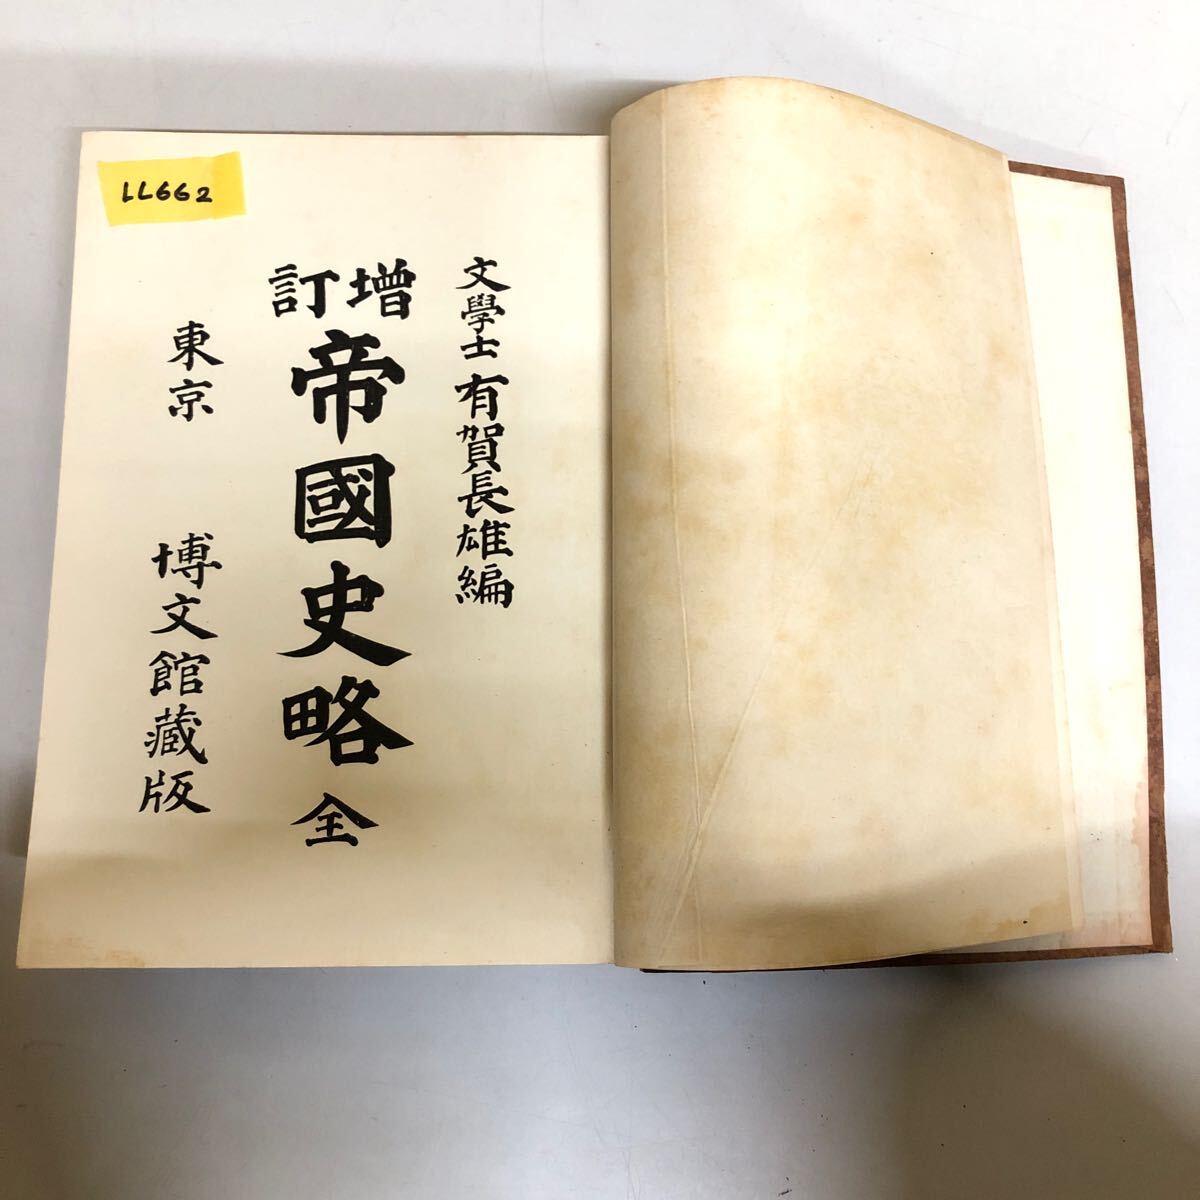 LL662
文學士 有賀長雄編
增訂
帝國史略 全
東京 博文館蔵版